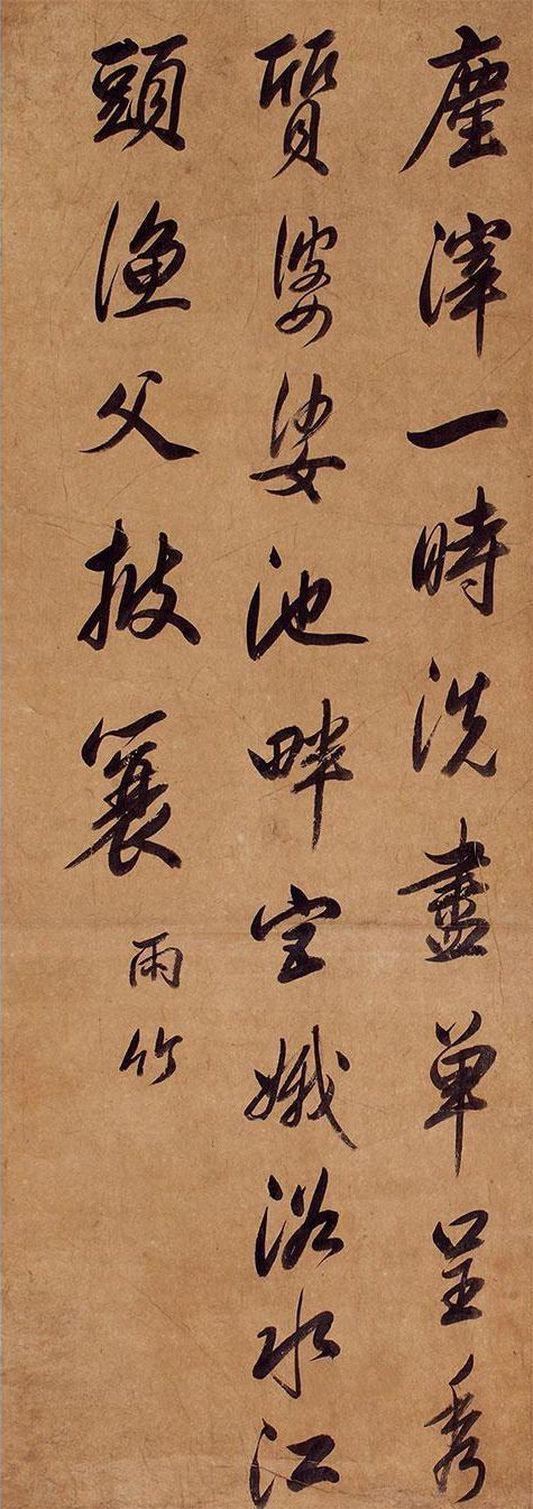 塵滓一時洗盡单呈秀
質婆娑池畔宮娥浴水江
頭漁父披蓑
雨竹